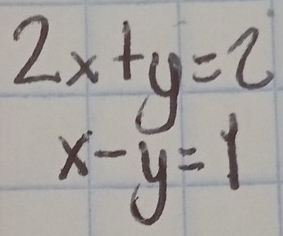 2x+y=2
x-y=1